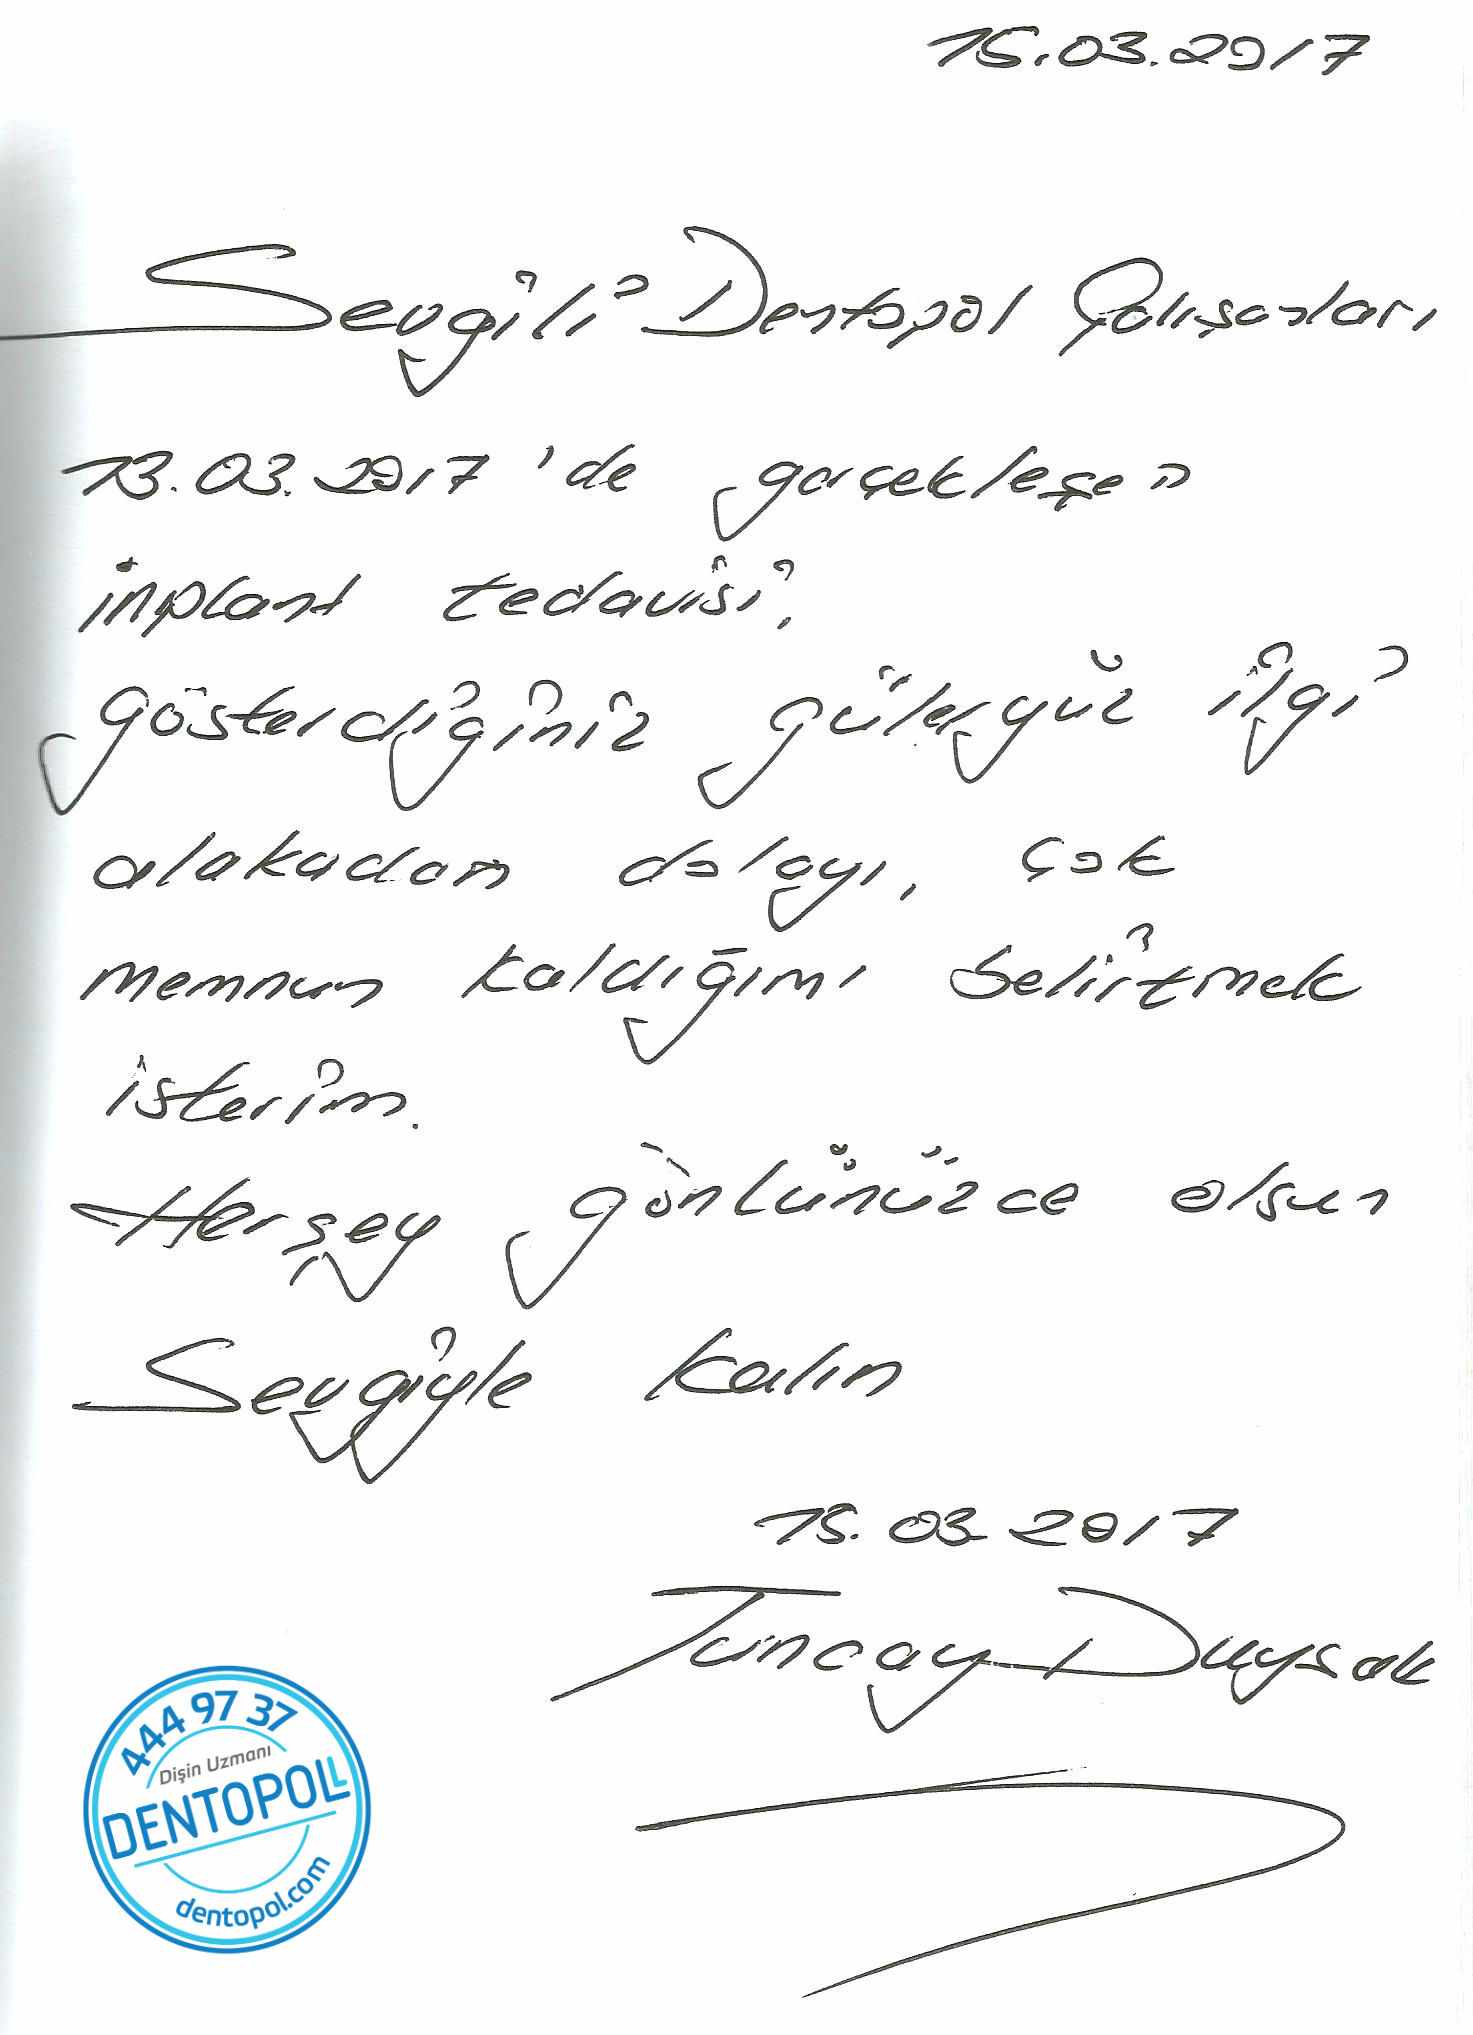 15.03.2017
Sevgili Dentopol Çalışanları
13.03.2017 'de gerçekleşen
inplant tedavisi,
gösterdiğiniz güleryüz ilgi
alakadan dolayı, çok
memnun kaldığımı belirtmek
isterim.
Herşey gönlünüzce olsun
Sevgiyle kalın
15.03.2017
Tuncay Duysak
444 97 37
Dişin Uzmanı
DENTOPOL
dentopol.com